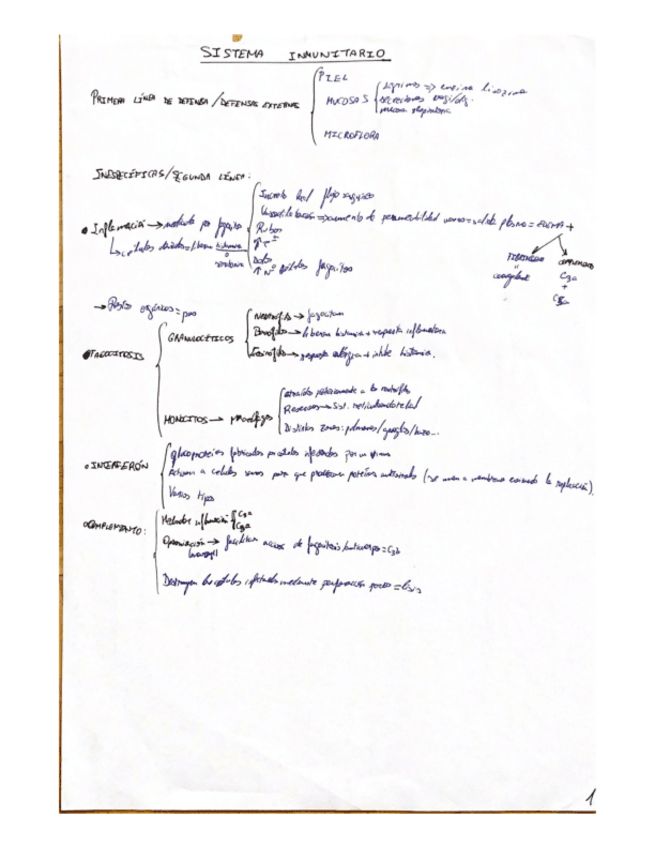 SISTEMA INMUNITARIO
PRIMERA LÍNEA DE DEFENSA/DEFENSAS EXTERNAS
PIEL
MUCOSAS
lágrimas => enzima lisozima
secreciones
MICROFLORA
INESPECÍFICAS/SEGUNDA LÍNEA:
• Inflamación → mediada por
células = liberan histamina
o
local flujo sanguíneo
Vasodilatación => aumento de permeabilidad = salida plasma = EDEMA +
Rubor
↑ Tª
Dolor
↑ Nº células
FIBRINÓGENO
coagulante
COMPLEMENTO
C3a
+
C5a
→ Restos orgánicos = pus
• FAGOCITOSIS
GRANULOCÍTICOS
Neutrófilos →
Basófilos → liberan histamina + respuesta inflamatoria
Eosinófilos → respuesta alérgica + inhibe histamina.
MONOCITOS → macrófagos
atraídos posteriormente a los neutrófilos
Sist. retículoendotelial
Distintas zonas: pulmones/ganglios/bazo...
• INTERFERÓN
glucoproteínas fabricadas por células infectadas por un virus
Activan a células sanas para que produzcan proteína antivírica (se unen a membrana evitando la replicación).
Varios tipos
• COMPLEMENTO:
Mediador inflamación
C3a
C5a
Opsonización → facilitan acción de fagocitosis = C3b
Destruyen las células infectadas mediante perforación = lisis
1